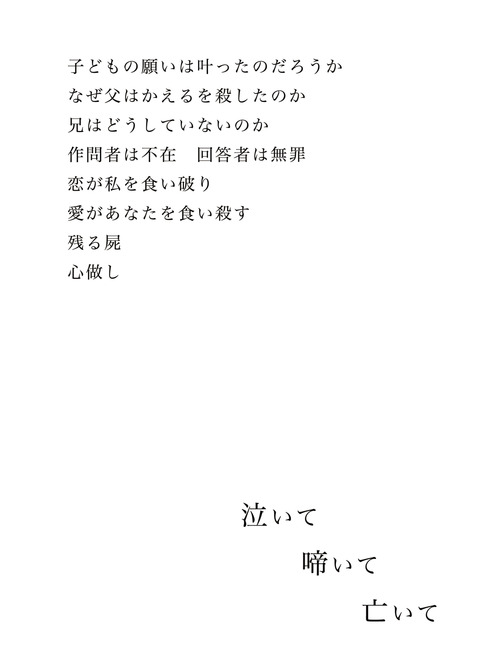 子どもの願いは叶ったのだろうか
なぜ父はかえるを殺したのか
兄はどうしていないのか
作問者は不在　回答者は無罪
恋が私を食い破り
愛があなたを食い殺す
残る屍
心做し
泣いて
啼いて
亡いて